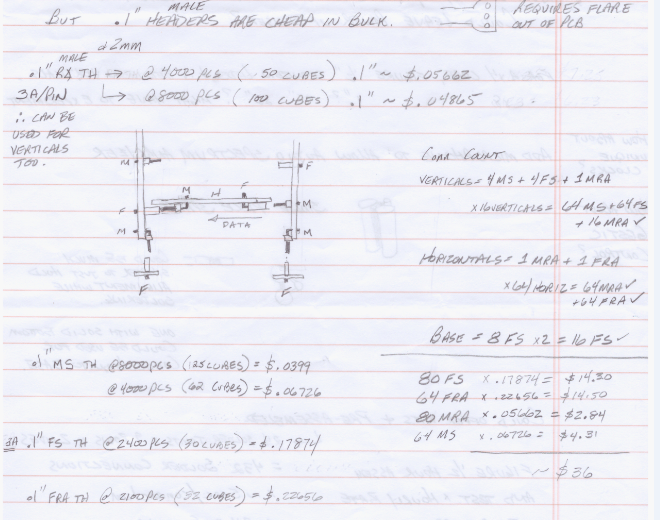 MALE
BUT .1" HEADERS ARE CHEAP IN BULK.
REQUIRES FLARE
OUT OF PCB
& 2mm
MALE
.1" RA TH → @ 4000 PCS ( 50 CUBES) .1" ~ $.05662
3A/PIN ↳ @ 8000 PCS ( 100 CUBES) .1" ~ $.04865
∴ CAN BE
USED FOR
VERTICALS
TOO.
M F
M H F
F M
DATA
M M
F F
CONN COUNT
VERTICALS = 4 MS + 4 FS + 1 MRA
x 16 VERTICALS = 64 MS + 64 FS
+ 16 MRA ✓
HORIZONTALS = 1 MRA + 1 FRA
x 64 HORIZ = 64 MRA ✓
+ 64 FRA ✓
BASE = 8 FS x2 = 16 FS ✓
.1" MS TH @ 8000 PCS (125 CUBES) = $.0399
@ 4000 PCS (62 CUBES) = $.06726
3A .1" FS TH @ 2400 PCS (30 CUBES) = $.17874
.1" FRA TH @ 2100 PCS (32 CUBES) = $.22656
80 FS x .17874 = $14.30
64 FRA x .22656 = $14.50
80 MRA x .05662 = $2.84
64 MS x .06726 = $4.31
~ $36